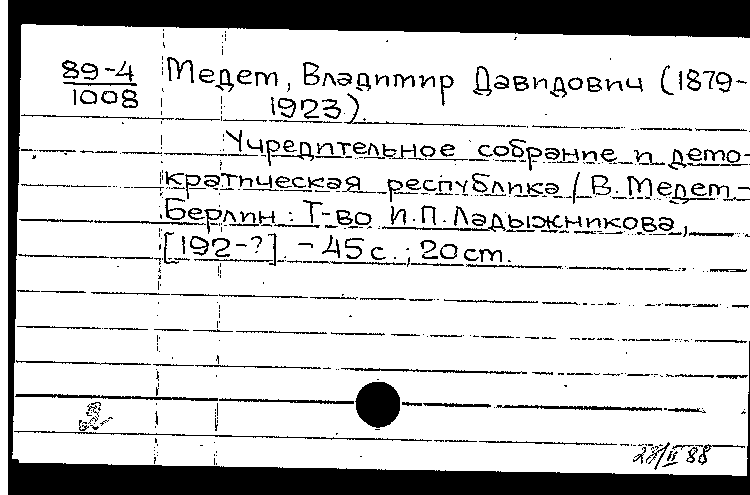 89-4
1008
Медем, Владимир Давидович (1879-
1923).
Учредительное собрание и демо-
кратическая республика / В. Медем -
Берлин : Т-во И.П. Ладыжникова,
[192-?]. - 45 с. ; 20 см.
28/II 88